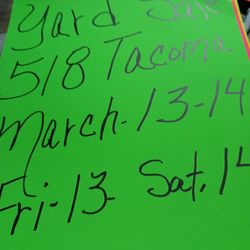 Yard Sale
518 Tacoma
March-13-14
Fri-13- Sat. 14